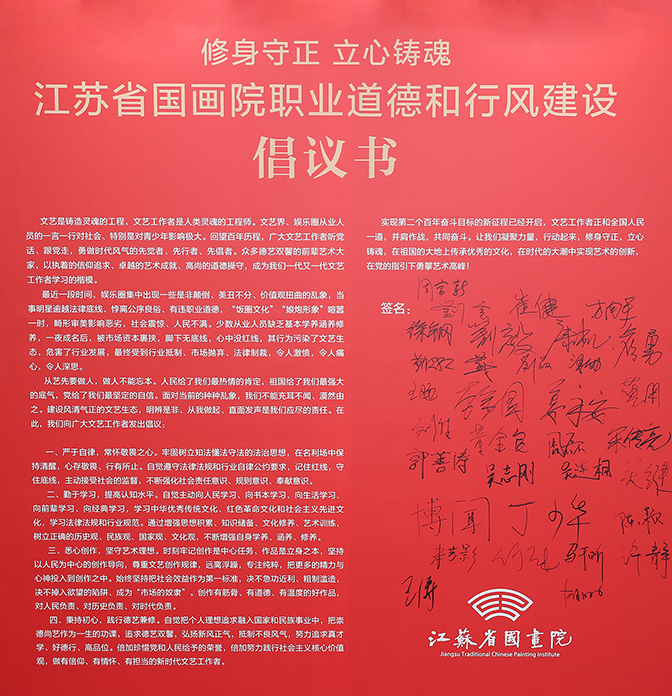 修身守正 立心铸魂
江苏省国画院职业道德和行风建设
倡议书
文艺是铸造灵魂的工程，文艺工作者是人类灵魂的工程师。文艺界、娱乐圈从业人
员的一言一行对社会、特别是对青少年影响极大。回望百年历程，广大文艺工作者听党
话、跟党走，勇做时代风气的先觉者、先行者、先倡者。众多德艺双馨的前辈艺术大
家，以执着的信仰追求、卓越的艺术成就、高尚的道德操守，成为我们一代又一代文艺
工作者学习的楷模。
最近一段时间，娱乐圈集中出现一些是非颠倒、美丑不分、价值观扭曲的乱象，当
事明星逾越法律底线、悖离公序良俗、有违职业道德，“饭圈文化”“娘炮形象”喧嚣
一时，畸形审美影响恶劣，社会震惊、人民不满。少数从业人员缺乏基本学养涵养修
养，一夜成名后，被市场资本裹挟，脚下无底线，心中没红线，其行为污染了文艺生
态，危害了行业发展，最终受到行业抵制、市场抛弃、法律制裁，令人激愤，令人痛
心，令人深思。
从艺先要做人，做人不能忘本。人民给了我们最热情的肯定，祖国给了我们最强大
的底气，党给了我们最坚定的自信。面对当前的种种乱象，我们不能充耳不闻、漠然由
之。建设风清气正的文艺生态，明辨是非、从我做起、直面发声是我们应尽的责任。在
此，我们向广大文艺工作者发出倡议：
一、严于自律，常怀敬畏之心。牢固树立知法懂法守法的法治思想，在名利场中保
持清醒，心存敬畏、行有所止。自觉遵守法律法规和行业自律公约要求，记住红线，守
住底线，主动接受社会的监督，不断强化社会责任意识、规则意识、奉献意识。
二、勤于学习，提高认知水平。自觉主动向人民学习、向书本学习、向生活学习、
向前辈学习、向经典学习，学习中华优秀传统文化、红色革命文化和社会主义先进文
化，学习法律法规和行业规范。通过增强思想积累、知识储备、文化修养、艺术训练，
树立正确的历史观、民族观、国家观、文化观，不断增强自身学养、涵养、修养。
三、悉心创作，坚守艺术理想。时刻牢记创作是中心任务、作品是立身之本，坚持
以人民为中心的创作导向，尊重文艺创作规律，远离浮躁，专注纯粹，把更多的精力与
心神投入到创作之中。始终坚持把社会效益作为第一标准，决不急功近利、粗制滥造，
决不掉入欲望的陷阱、成为“市场的奴隶”。创作有筋骨、有道德、有温度的好作品，
对人民负责、对历史负责、对时代负责。
四、秉持初心，践行德艺兼修。自觉把个人理想追求融入国家和民族事业中，把崇
德尚艺作为一生的功课，追求德艺双馨，弘扬新风正气，抵制不良风气，努力追求真才
学、好德行、高品位。倍加珍惜党和人民给予的荣誉，倍加努力践行社会主义核心价值
观，做有信仰、有情怀、有担当的新时代文艺工作者。
实现第二个百年奋斗目标的新征程已经开启，文艺工作者正和全国人民
一道，并肩作战，共同奋斗。让我们凝聚力量，行动起来，修身守正，立心
铸魂，在祖国的大地上传承优秀的文化，在时代的大潮中实现艺术的创新，
在党的指引下勇攀艺术高峰！
签名：
崔健
劉毅
喻勇
郭善涛
吴志刚
宋伟亮
博闻
丁少华
许静
王涛
江蘇省國畫院
Jiangsu Traditional Chinese Painting Institute